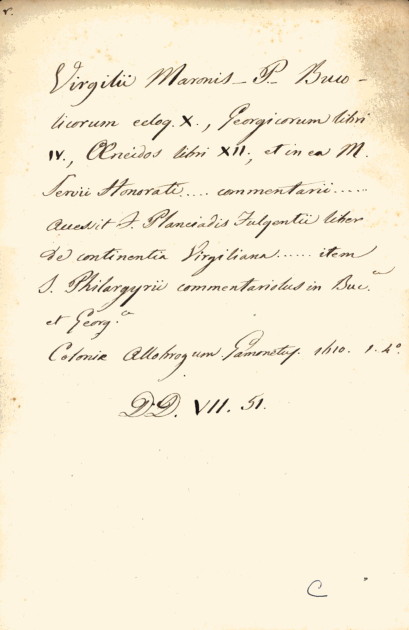 r.
Virgilii Maronis - P - Buco-
licorum eclog. X., Georgicorum libri
IV., Œneidos libri XII., et in ea M.
Servii Honorati .... commentarii .....
accessit F. Planciadis Fulgentii liber
de continentia Virgiliana ...... item
J. Philargyrii commentariolus in Buc.ca
et Georg.ca
Coloniæ Allobrogum. 1610. 1. 4º.
DD. VII. 51.
C